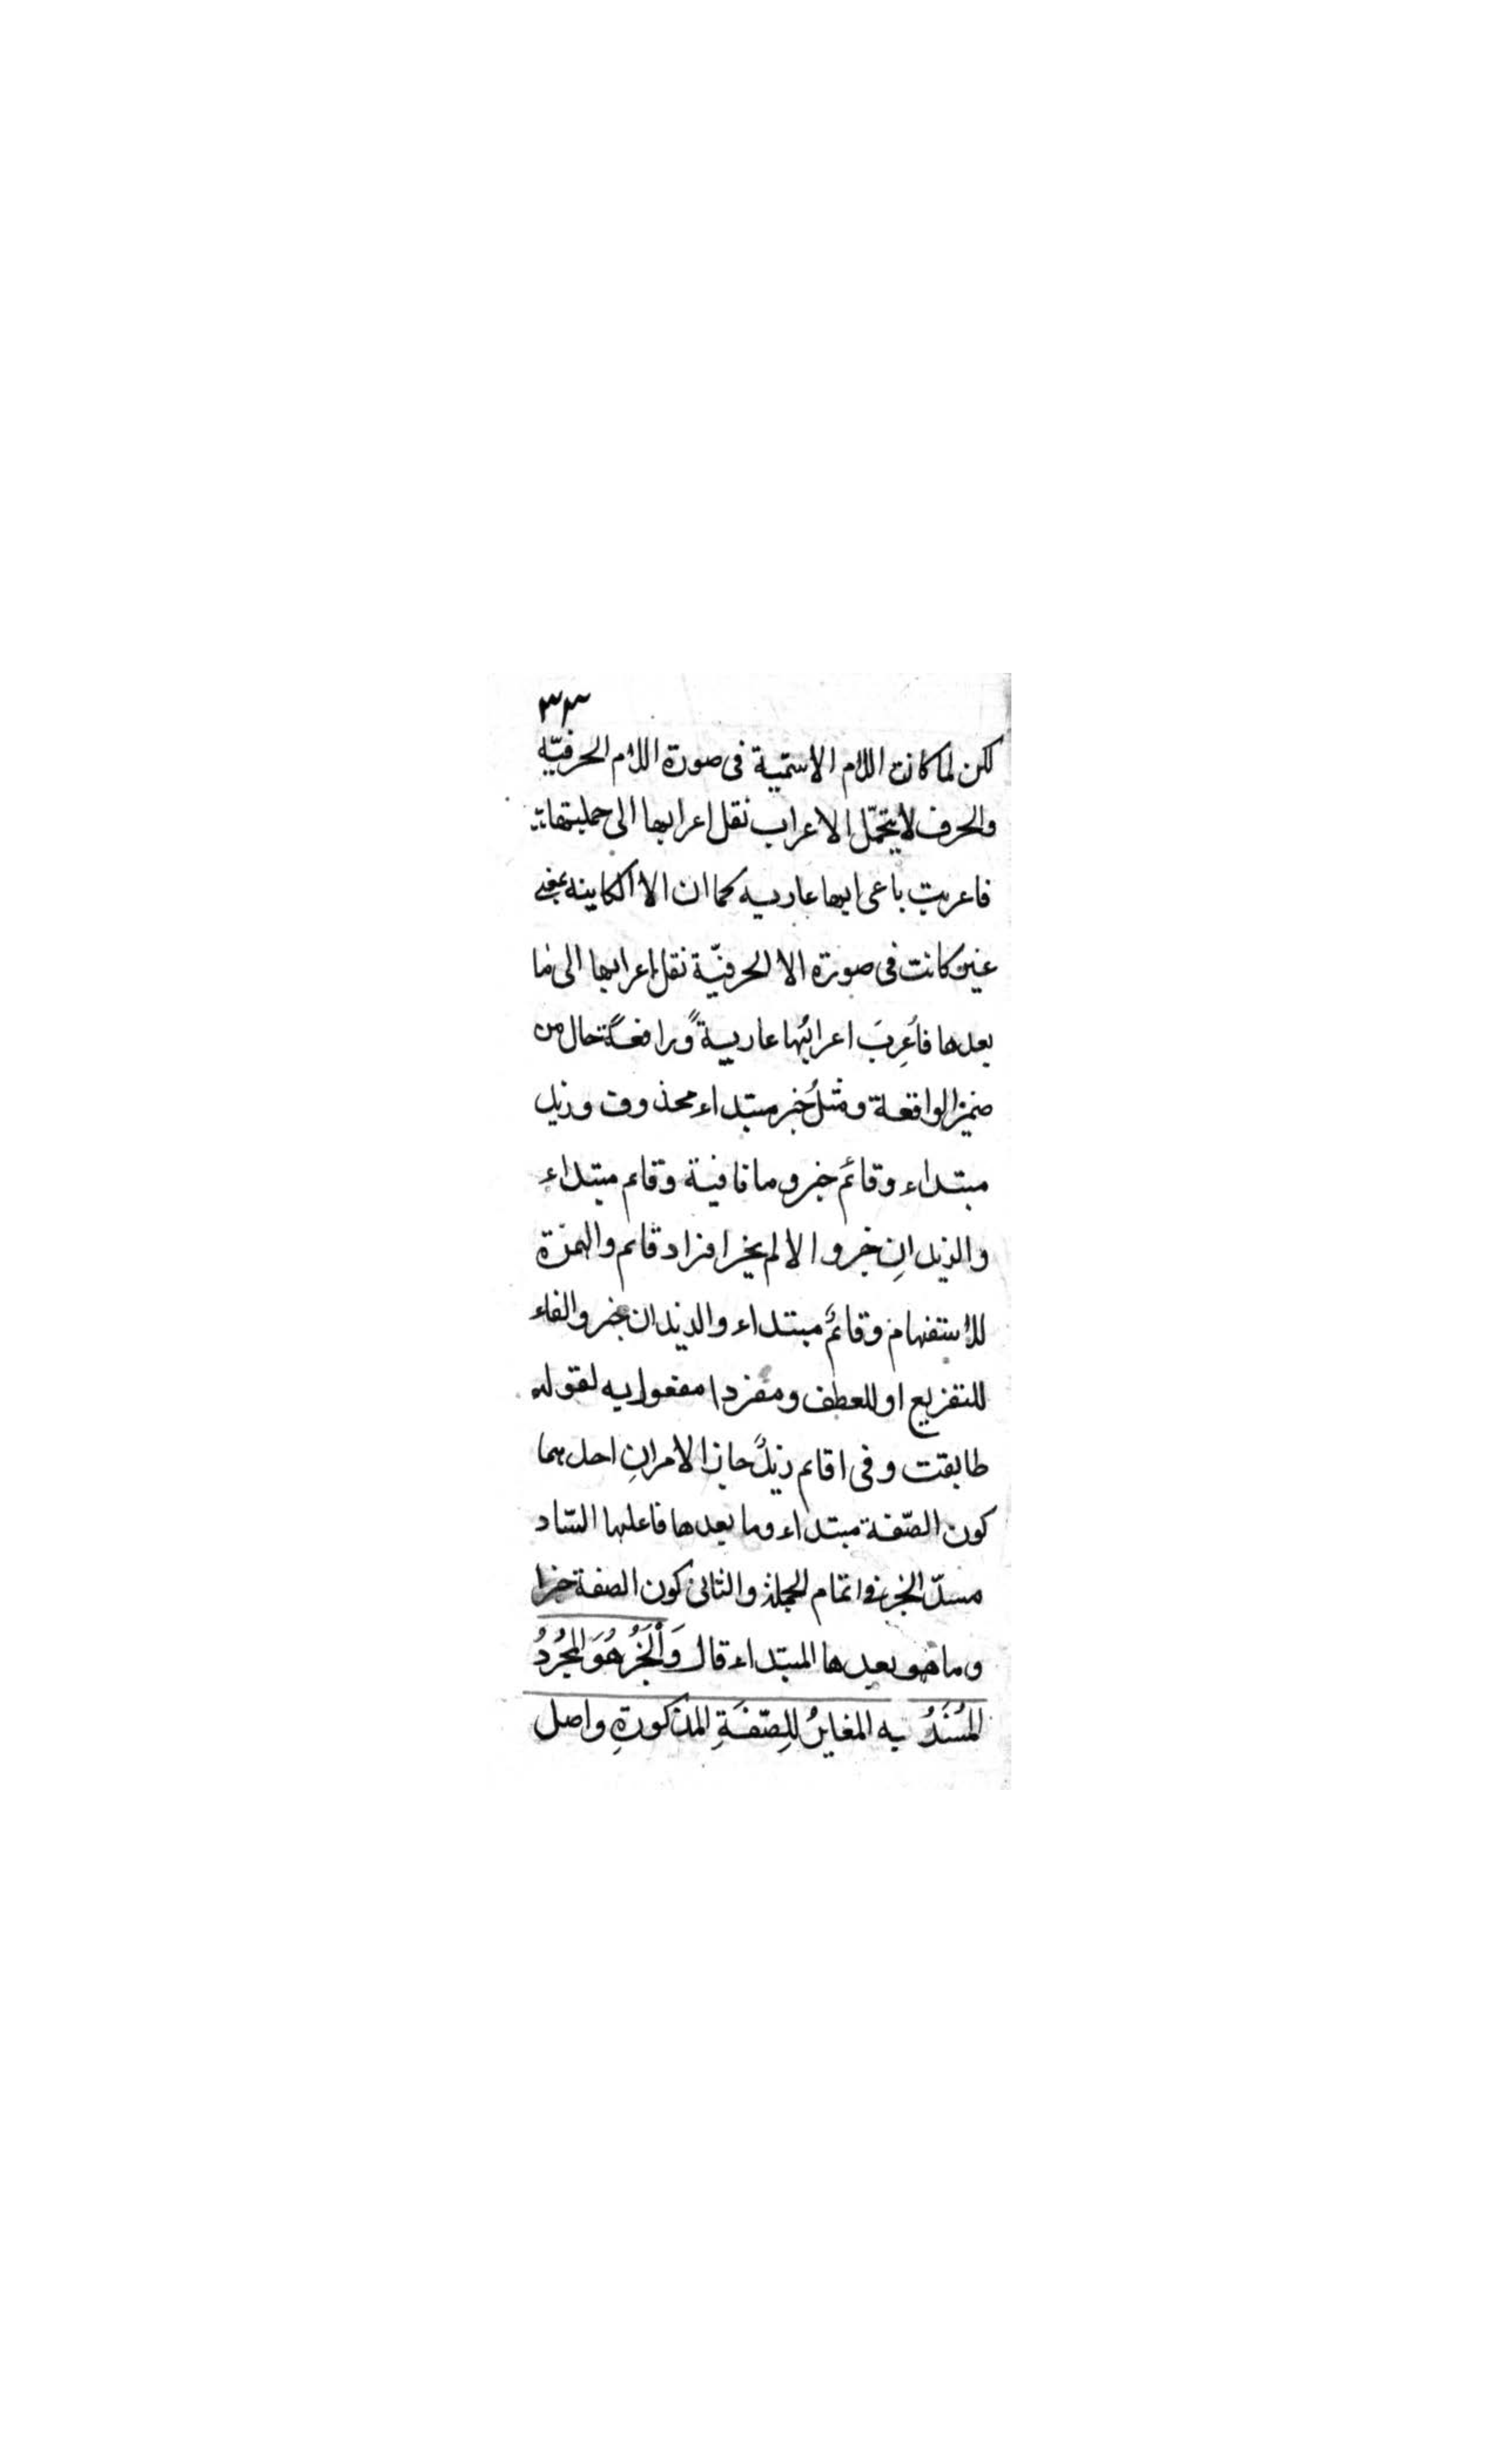 ٣٣
لكن لما كانت اللام الاسمية فى صورة اللام الحرفيّه
والحرف لا يتحمّل الاعراب نقل اعرابها الى جملتها
فاعربت باعرابها عاريه كما ان الا الكاينه بمعنى
غير كانت فى صورة الا الحرفيّة نقل اعرابها الى ما
بعدها فأُعرِبَ اعرابُها عاريةً ورافعةً حال من
ضمير الواقعة ومثلُ خبر مبتداء محذوف وزيد
مبتداء وقائم خبر وما نافية وقائم مبتداء
والزيدانِ خبر والا لم يخبر افراد قائم والهمزة
للاستفهام وقائمٌ مبتداء والزيدان خبر والفاء
للتفريع او للعطف ومفردا مفعول به لقوله
طابقت وفى اقائم زيدٌ جاز الامرانِ احدهما
كون الصّفة مبتداء وما بعدها فاعلها السّاد
مسدّ الخبر فى اتمام الجملة والثانى كون الصفة خبرا
وما هو بعدها المبتداء قال وَالْخَبَرُ هُوَ الْمُجَرَّدُ
الْمُسْنَدُ به المغايرُ للصّفَةِ المذكورةِ واصل